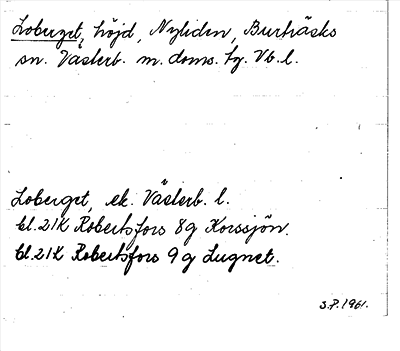 Loberget, höjd, Nyliden, Burträsks
sn. Västerb. m. doms. fg. Vb. l.
Loberget, ek. Västerb. l.
bl. 21K Robertsfors 8g Korssjön.
bl. 21K Robertsfors 9g Lugnet.
S.P. 1961.